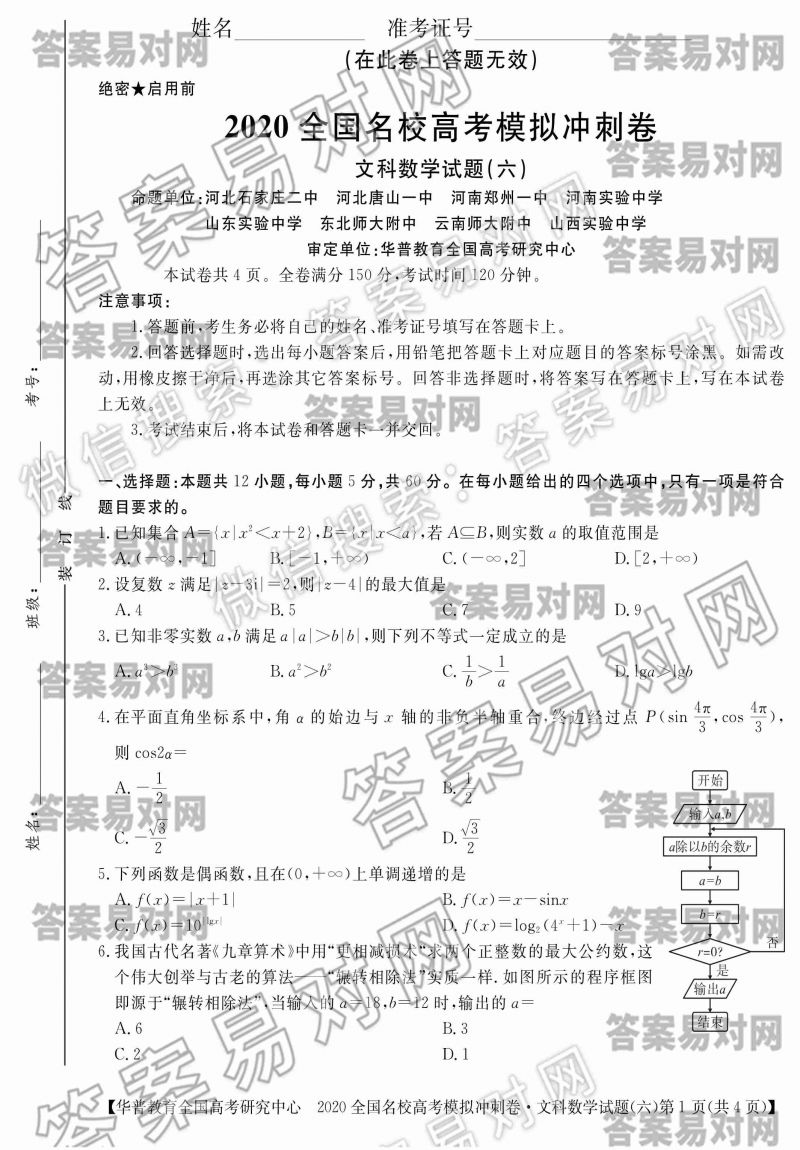 姓名 准考证号
(在此卷上答题无效)
绝密★启用前
2020 全国名校高考模拟冲刺卷
文科数学试题(六)
命题单位:河北石家庄二中 河北唐山一中 河南郑州一中 河南实验中学
山东实验中学 东北师大附中 云南师大附中 山西实验中学
审定单位:华普教育全国高考研究中心
本试卷共 4 页。全卷满分 150 分,考试时间 120 分钟。
注意事项:
1.答题前,考生务必将自己的姓名、准考证号填写在答题卡上。
2.回答选择题时,选出每小题答案后,用铅笔把答题卡上对应题目的答案标号涂黑。如需改
动,用橡皮擦干净后,再选涂其它答案标号。回答非选择题时,将答案写在答题卡上,写在本试卷
上无效。
3.考试结束后,将本试卷和答题卡一并交回。
一、选择题:本题共 12 小题,每小题 5 分,共 60 分。在每小题给出的四个选项中,只有一项是符合
题目要求的。
1.已知集合 A={x|x²<x+2},B={x|x<a},若 A⊆B,则实数 a 的取值范围是
A.(-∞,-1] B.[-1,+∞) C.(-∞,2] D.[2,+∞)
2.设复数 z 满足|z-3i|=2,则|z-4|的最大值是
A.4 B.5 C.7 D.9
3.已知非零实数 a,b 满足 a|a|>b|b|,则下列不等式一定成立的是
A.a³>b³ B.a²>b² C.1/b>1/a D.lga>lgb
4.在平面直角坐标系中,角 α 的始边与 x 轴的非负半轴重合,终边经过点 P(sin 4π/3,cos 4π/3),
则 cos2α=
A.-1/2 B.1/2
C.-√3/2 D.√3/2
5.下列函数是偶函数,且在(0,+∞)上单调递增的是
A.f(x)=|x+1| B.f(x)=x-sinx
C.f(x)=10^|lgx| D.f(x)=log₂(4ˣ+1)-x
6.我国古代名著《九章算术》中用“更相减损术“求两个正整数的最大公约数,这
个伟大创举与古老的算法——“辗转相除法”实质一样.如图所示的程序框图
即源于“辗转相除法”,当输入的 a=18,b=12 时,输出的 a=
A.6 B.3
C.2 D.1
开始
输入a,b
a除以b的余数r
a=b
b=r
r=0?
否
是
输出a
结束
【华普教育全国高考研究中心 2020 全国名校高考模拟冲刺卷·文科数学试题(六)第 1 页(共 4 页)】
考号:
班级:
姓名:
装 订 线
答案易对网
微信搜索:答案易对网